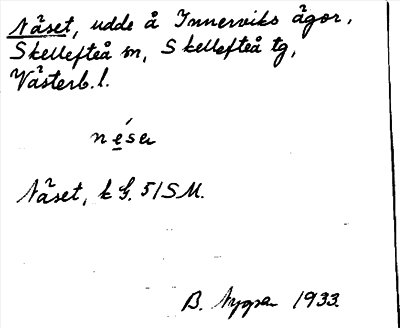 Näset, udde å Innerviks ägor,
Skellefteå sn, Skellefteå tg,
Västerb. l.
Näset, k G. 51 SM.
B. 1933.